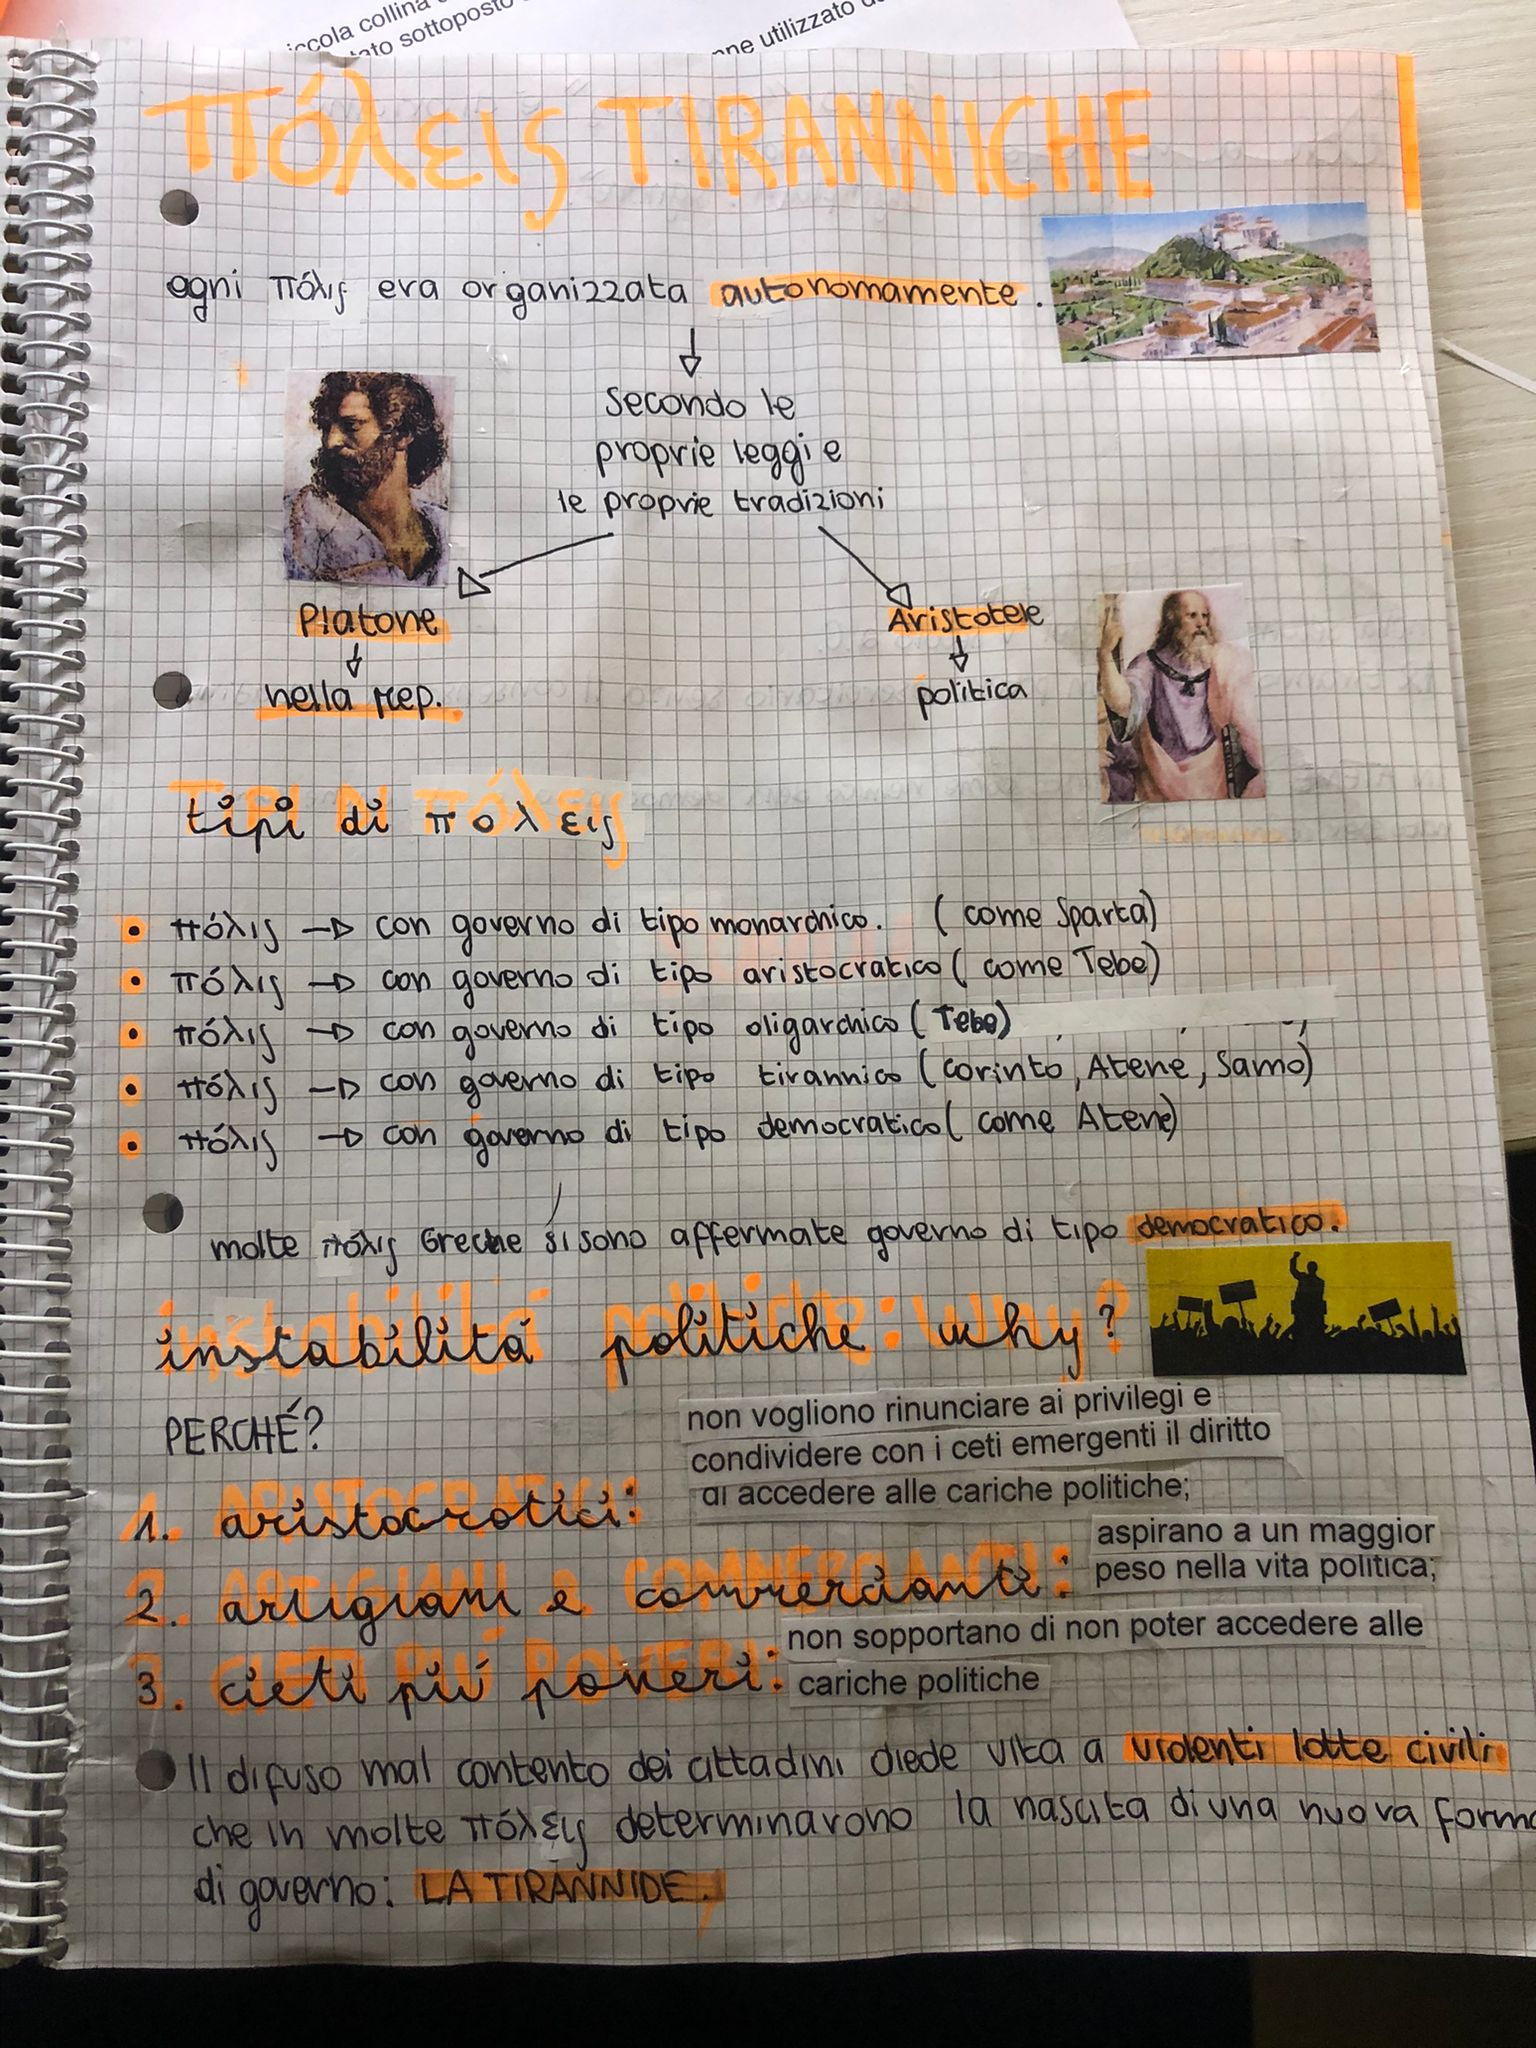 iccola collina
tato sottoposto
nne utilizzato d
πόλεις TIRANNICHE
ogni πόλις era organizzata autonomamente.
Secondo le
proprie leggi e
le proprie tradizioni
Platone
Aristotele
nella rep.
politica
tipi di πόλεις
• πόλις → con governo di tipo monarchico. (come Sparta)
• πόλις → con governo di tipo aristocratico (come Tebe)
• πόλις → con governo di tipo oligarchico (Tebe)
• πόλις → con governo di tipo tirannico (corinto, Atene, Samo)
• πόλις → con governo di tipo democratico (come Atene)
molte πόλις Greche si sono affermate governo di tipo democratico.
instabilità politiche: why?
PERCHÉ?
non vogliono rinunciare ai privilegi e
condividere con i ceti emergenti il diritto
di accedere alle cariche politiche;
1. aristocratici:
aspirano a un maggior
peso nella vita politica;
2. artigiani e commercianti:
non sopportano di non poter accedere alle
cariche politiche
3. cieti più poveri:
Il difuso mal contento dei cittadini diede vita a violenti lotte civili
che in molte πόλεις determinarono la nascita di una nuova forma
di governo: LA TIRANNIDE,